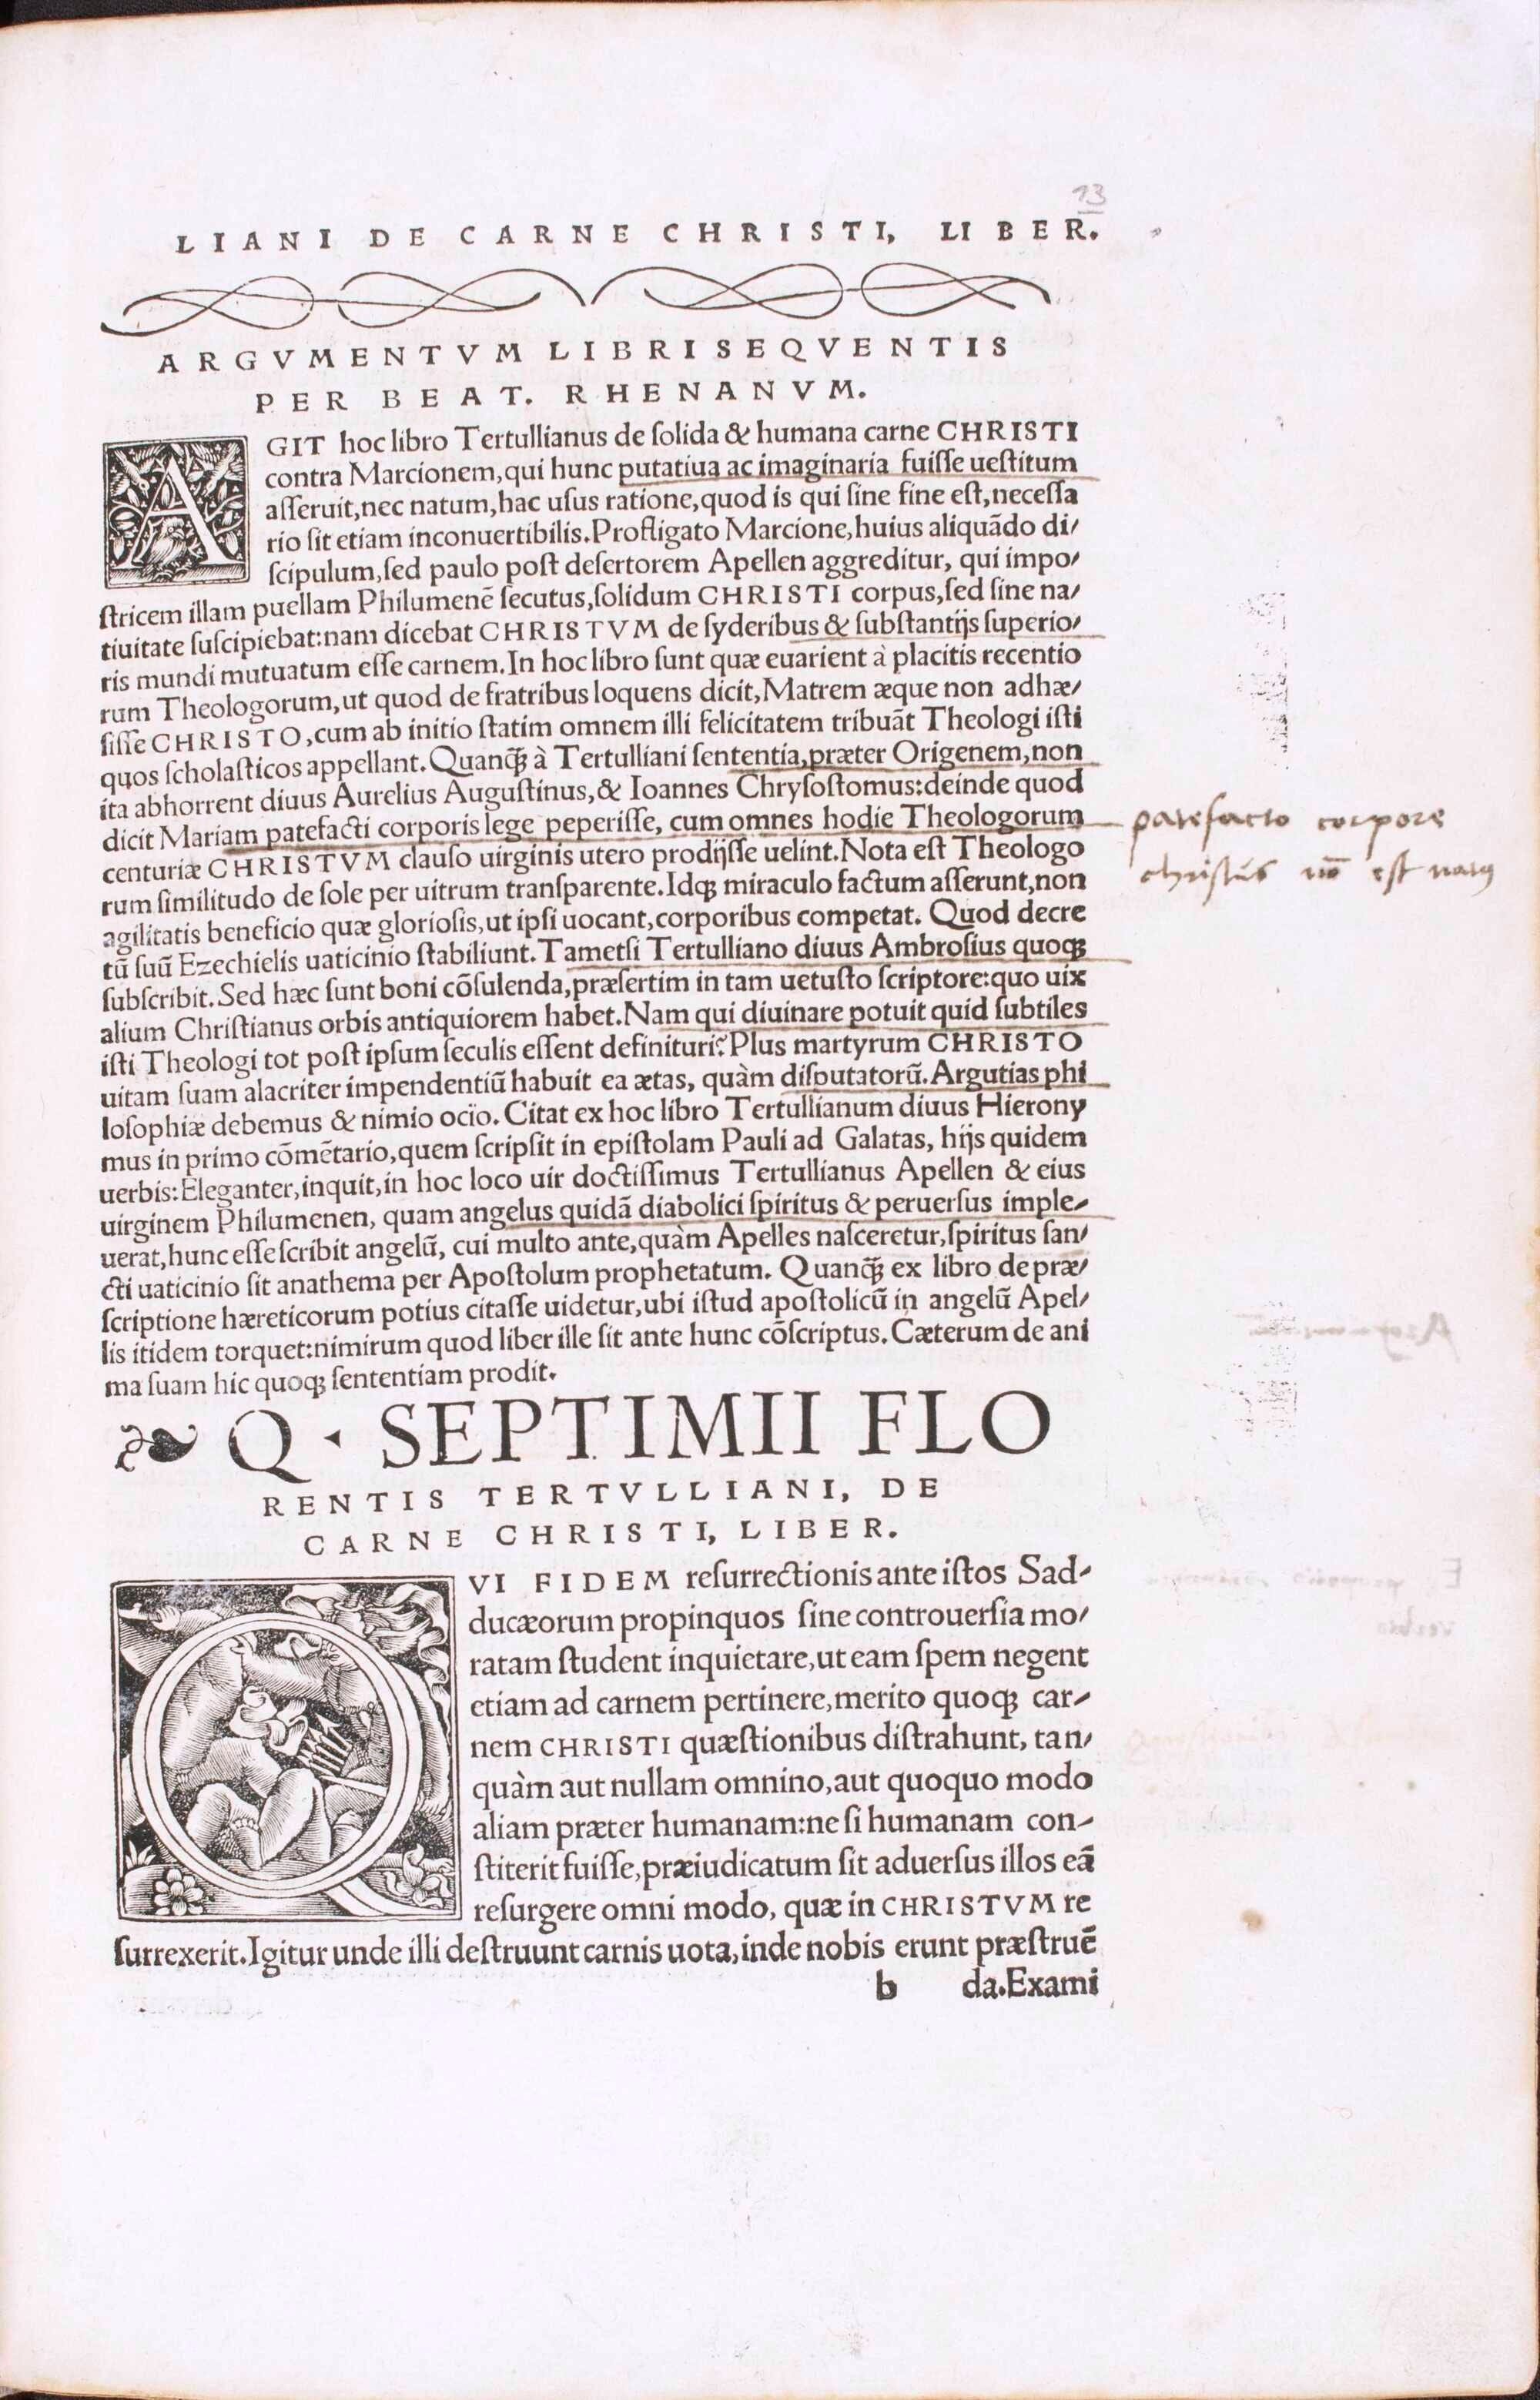 13
LIANI DE CARNE CHRISTI, LIBER.
ARGVMENTVM LIBRI SEQVENTIS
PER BEAT. RHENANVM.
AGIT hoc libro Tertullianus de ſolida & humana carne CHRISTI
contra Marcionem, qui hunc putatiua ac imaginaria fuiſſe ueſtitum
aſſeruit, nec natum, hac uſus ratione, quod is qui ſine fine eſt, neceſſa
rio ſit etiam inconuertibilis. Profligato Marcione, huius aliquādo di/
ſcipulum, ſed paulo poſt deſertorem Apellen aggreditur, qui impo/
ſtricem illam puellam Philumenē ſecutus, ſolidum CHRISTI corpus, ſed ſine na/
tiuitate ſuſcipiebat: nam dicebat CHRISTVM de ſyderibus & ſubſtantijs ſuperio/
ris mundi mutuatum eſſe carnem. In hoc libro ſunt quæ euarient à placitis recentio
rum Theologorum, ut quod de fratribus loquens dicit, Matrem æque non adhæ/
ſiſſe CHRISTO, cum ab initio ſtatim omnem illi felicitatem tribuāt Theologi iſti
quos ſcholaſticos appellant. Quanq̃ à Tertulliani ſententia, præter Origenem, non
ita abhorrent diuus Aurelius Auguſtinus, & Ioannes Chryſoſtomus: deinde quod
dicit Mariam patefacti corporis lege peperiſſe, cum omnes hodie Theologorum
centuriæ CHRISTVM clauſo uirginis utero prodijſſe uelint. Nota eſt Theologo
rum ſimilitudo de ſole per uitrum tranſparente. Idq; miraculo factum aſſerunt, non
agilitatis beneficio quæ glorioſis, ut ipſi uocant, corporibus competat. Quod decre
tū ſuū Ezechielis uaticinio ſtabiliunt. Tametſi Tertulliano diuus Ambroſius quoq;
ſubſcribit. Sed hæc ſunt boni cōſulenda, præſertim in tam uetuſto ſcriptore: quo uix
alium Chriſtianus orbis antiquiorem habet. Nam qui diuinare potuit quid ſubtiles
iſti Theologi tot poſt ipſum ſeculis eſſent definituri? Plus martyrum CHRISTO
uitam ſuam alacriter impendentiū habuit ea ætas, quàm diſputatorū. Argutias phi
loſophiæ debemus & nimio ocio. Citat ex hoc libro Tertullianum diuus Hierony
mus in primo cōmētario, quem ſcripſit in epiſtolam Pauli ad Galatas, hijs quidem
uerbis: Eleganter, inquit, in hoc loco uir doctiſſimus Tertullianus Apellen & eius
uirginem Philumenen, quam angelus quidā diabolici ſpiritus & peruerſus imple/
uerat, hunc eſſe ſcribit angelū, cui multo ante, quàm Apelles naſceretur, ſpiritus ſan/
cti uaticinio ſit anathema per Apoſtolum prophetatum. Quanq̃ ex libro de præ/
ſcriptione hæreticorum potius citaſſe uidetur, ubi iſtud apoſtolicū in angelū Apel/
lis itidem torquet: nimirum quod liber ille ſit ante hunc cōſcriptus. Cæterum de ani
ma ſuam hic quoq; ſententiam prodit.
patefacto corpore
chriſtus nō eſt natus
❧ Q. SEPTIMII FLO
RENTIS TERTVLLIANI, DE
CARNE CHRISTI, LIBER.
QVI FIDEM reſurrectionis ante iſtos Sad/
ducæorum propinquos ſine controuerſia mo/
ratam ſtudent inquietare, ut eam ſpem negent
etiam ad carnem pertinere, merito quoq; car/
nem CHRISTI quæſtionibus diſtrahunt, tan/
quàm aut nullam omnino, aut quoquo modo
aliam præter humanam: ne ſi humanam con/
ſtiterit fuiſſe, præiudicatum ſit aduerſus illos eā
reſurgere omni modo, quæ in CHRISTVM re
ſurrexerit. Igitur unde illi deſtruunt carnis uota, inde nobis erunt præſtruē
b da. Exami